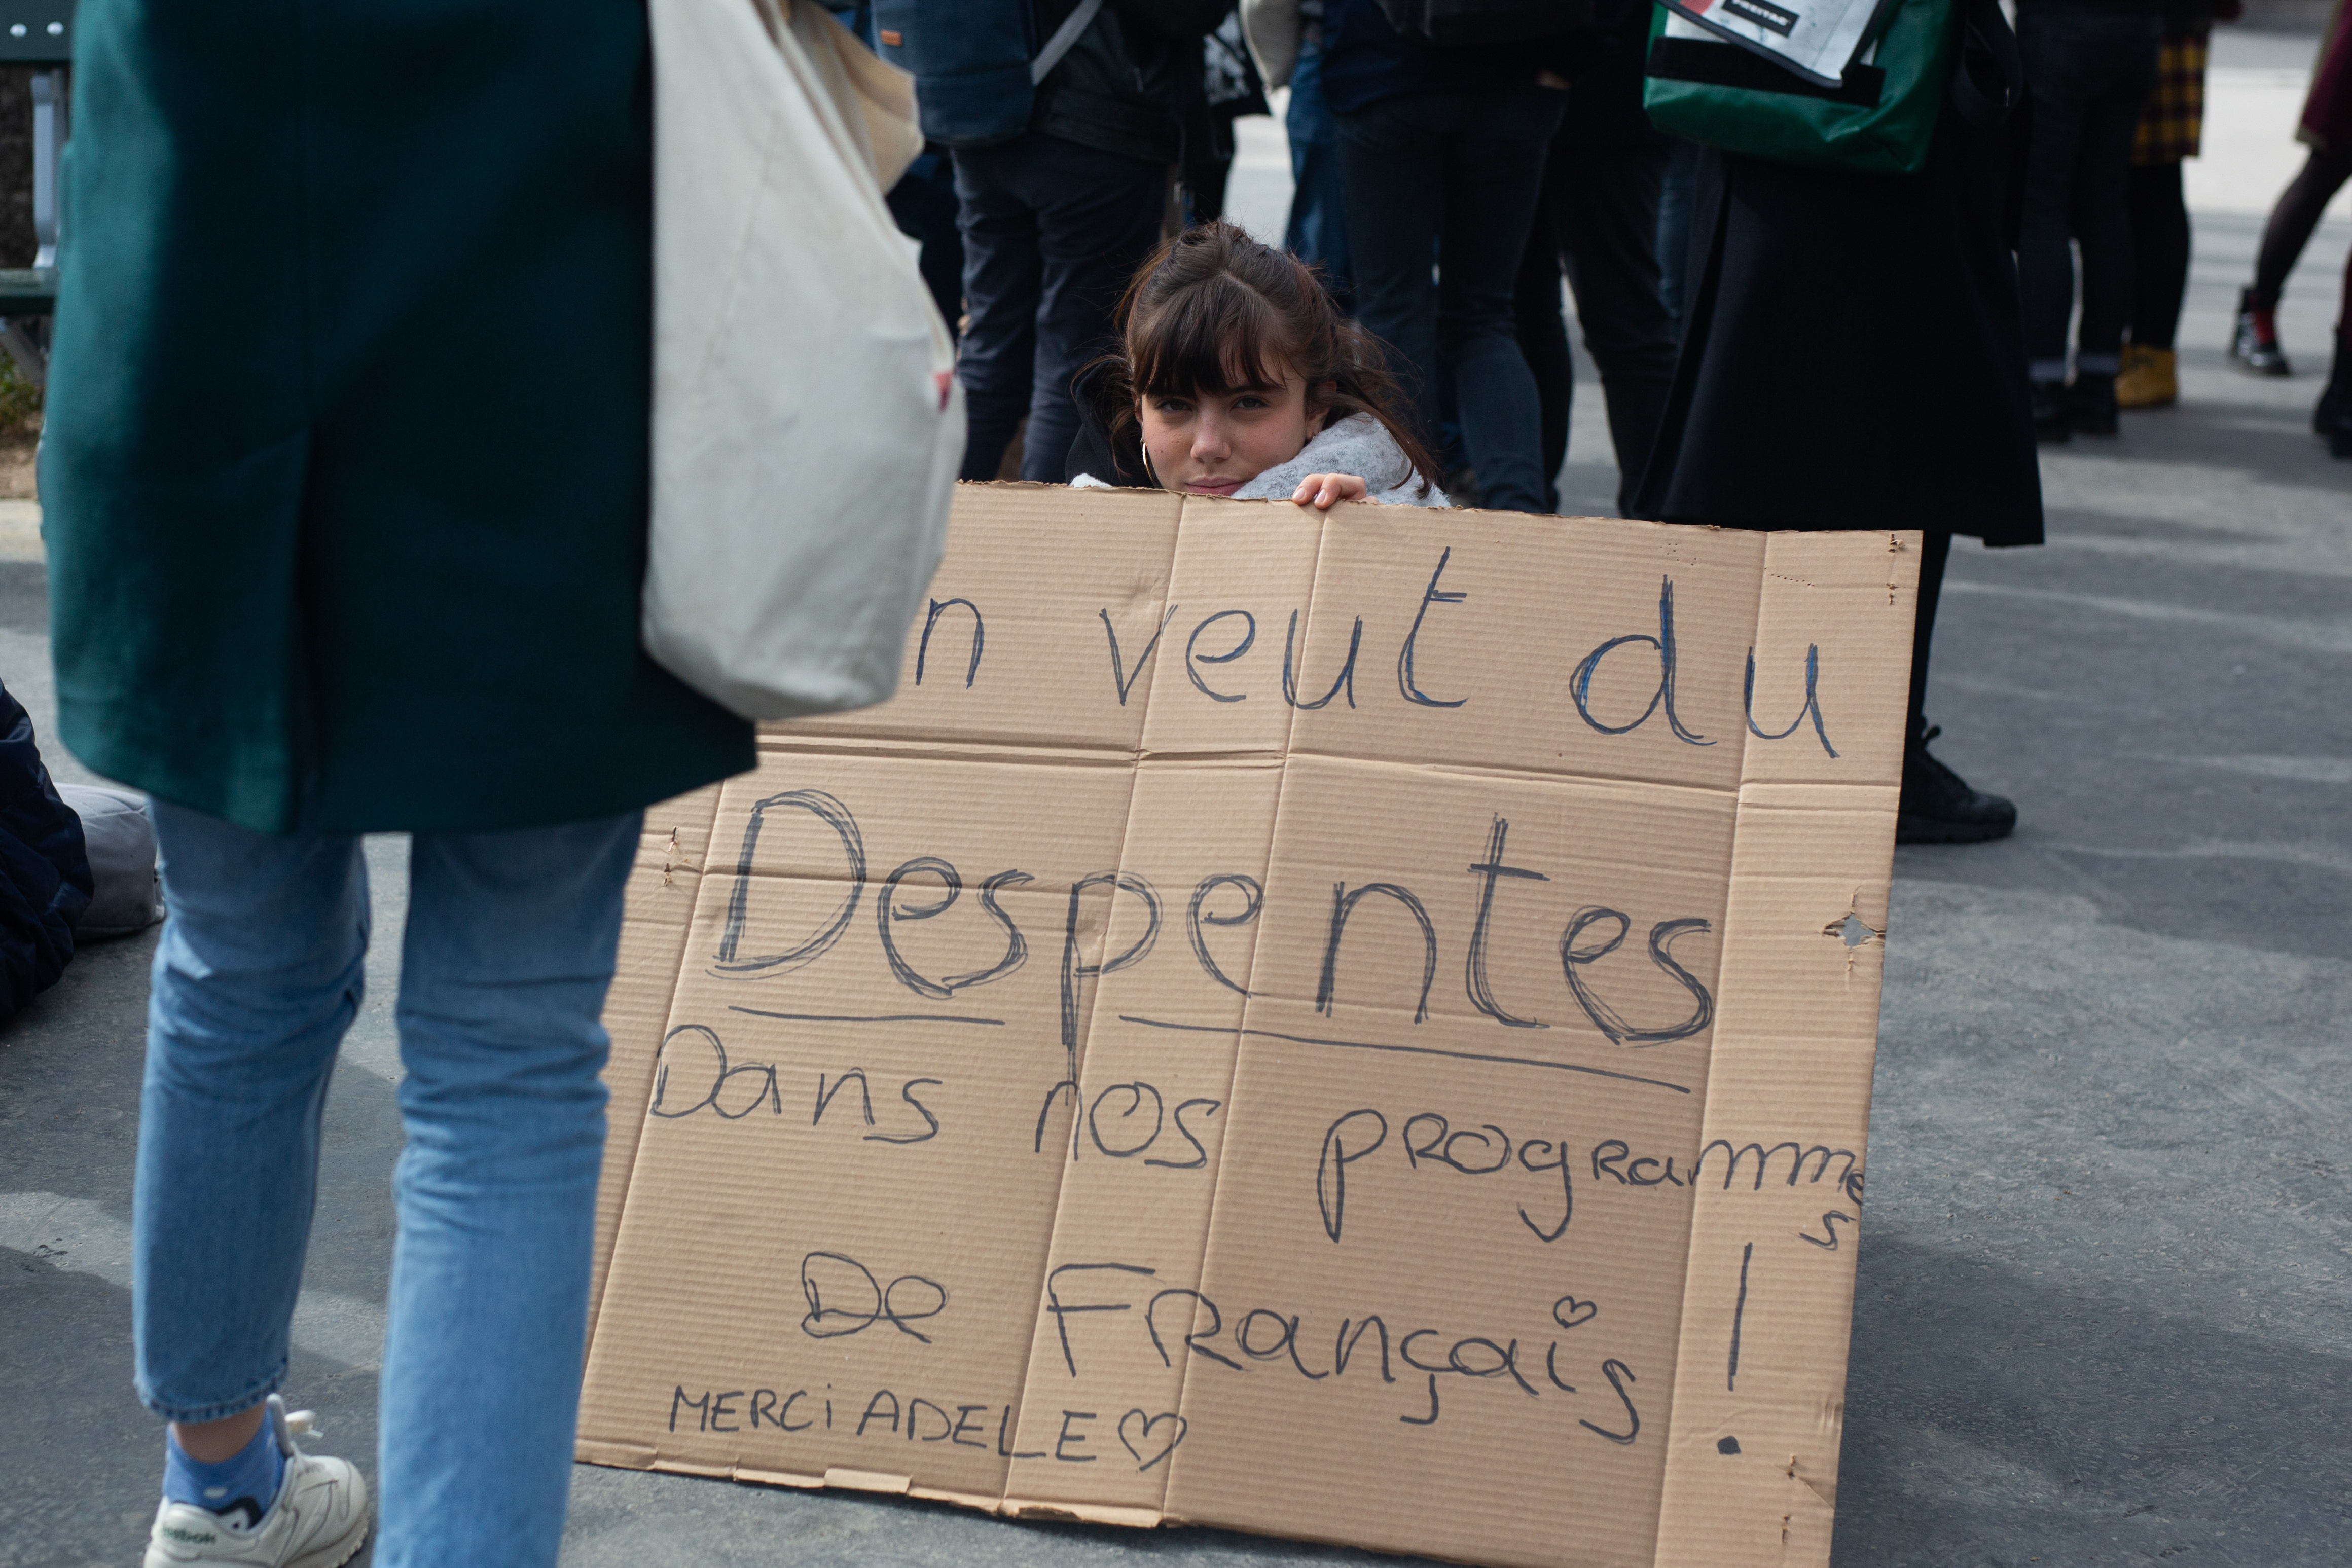 FREITAG
n veut du
Despentes
Dans nos programmes
De Français !
MERCi ADELE ♡
Reebok